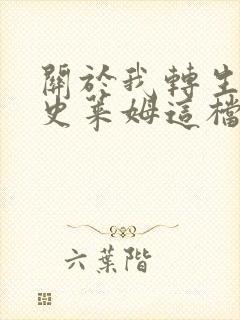 關於我轉生
史萊姆這檔
六葉階